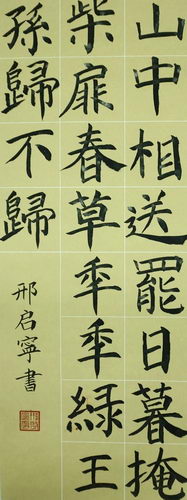 山中相送罷日暮掩
柴扉春草秊秊綠王
孫歸不歸
邢启寧書